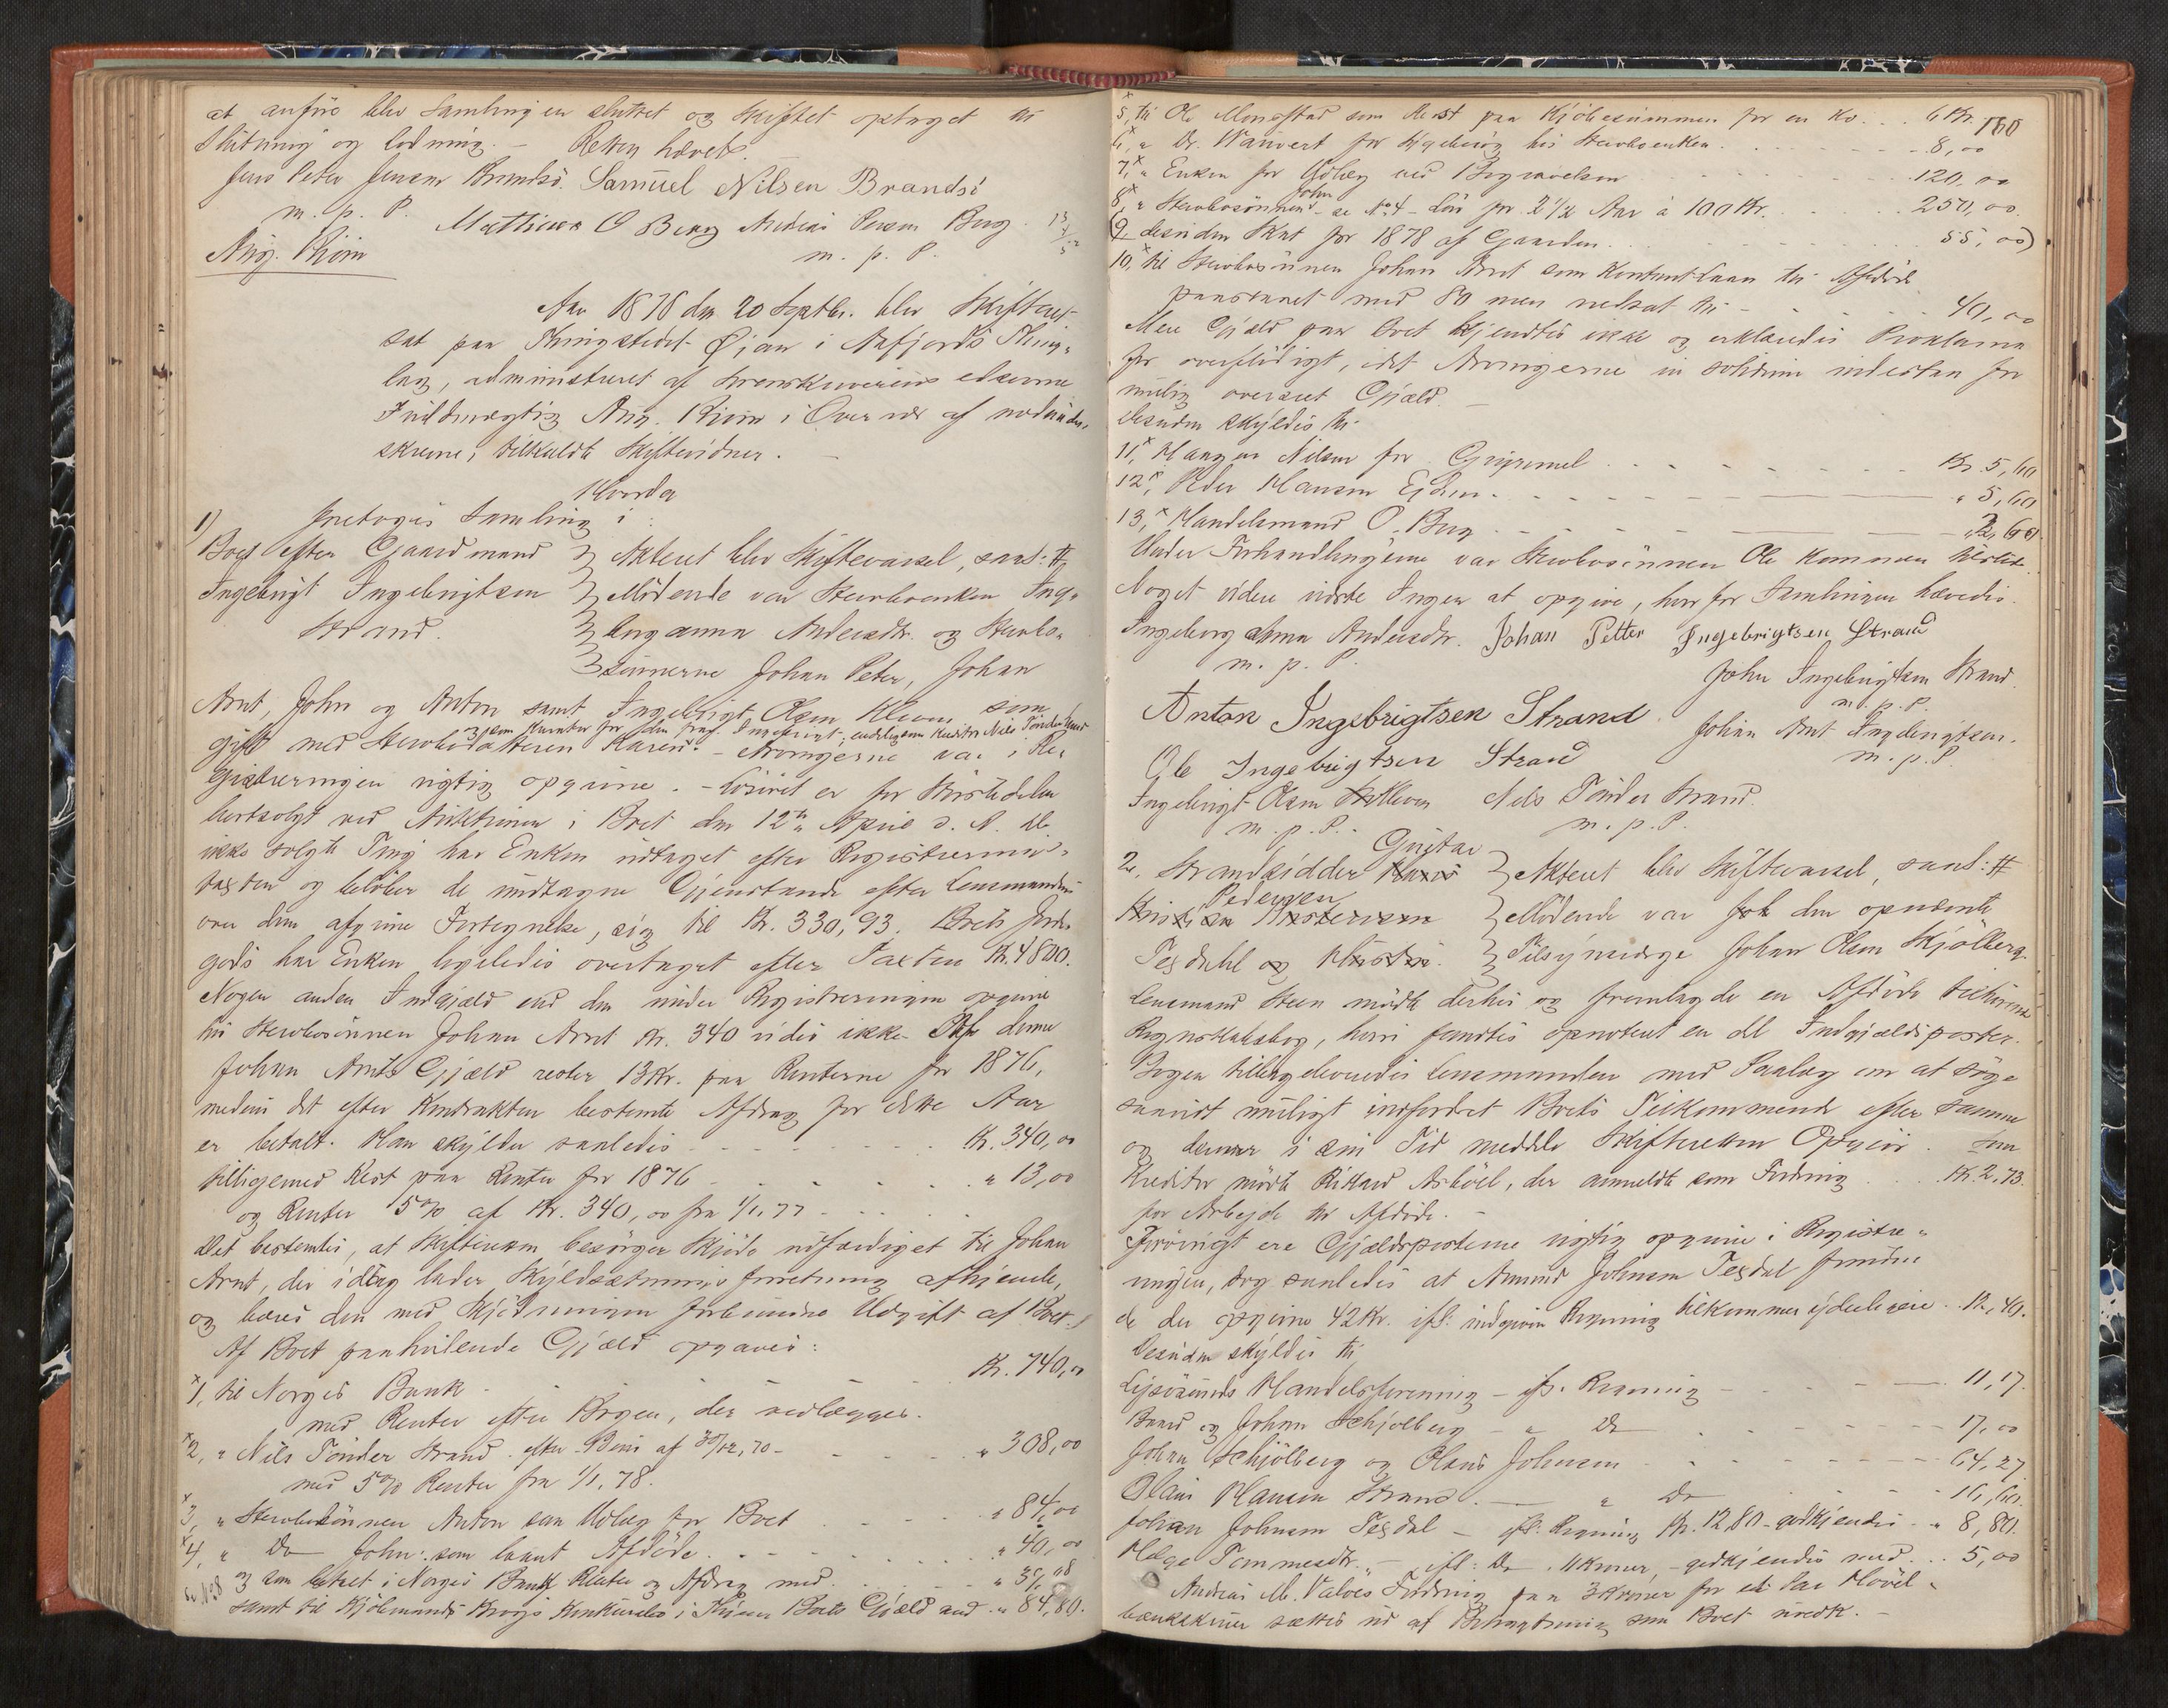 at anføre blev Samlingen sluttet og Skiftet optaget til
Slutning og Lodning. - Retten hævet.
Jens Peter Jensen Brandsø. Samuel Nilsen Brandsø
m. p. P. Mathias O Berg Andreas Berg
Aug. Riim m. p. P.
Aar 1878 den 20 Septbr. blev Skifteret
sat paa Thingstedet Øian i Aafjords Thing-
lag, administreret af Sorenskriverens edsvorne
Fuldmægtig Aug. Riim i Overvær af nedenun-
skrevne, tilkaldte Skiftevidner. -
Hvorda
1) foretoges Samling i
Boet efter Gaardmand
Ingebrigt Ingebrigtsen
Strand.
Akteret blev Skiftevarsel, saal: #
Mødende var Sterboenken Inge-
borg Anna Andersdtr. og Sterbo-
sønnerne Johan Peter, Johan
Arnt, John og Anton samt Ingebrigt Olsen Kleven som
og som Kurator for den frav. Ingebrigt, endelig som Kreditor Nils Tønder Strand
gift med Sterbodatteren Karen. - Arvingerne var i Re-
gistreringen rigtig opgivne. - Løsøret er for Størstedelen
bortsolgt ved Auktionen i Boet den 12te April d. A. De
ikke solgte Ting har Enken udtaget efter Registrerings-
taxten og beløber de undtagne Gjenstande efter Lensmandens
over dem afgivne Fortegnelse, sig til Kr. 330,93. Boets Jorde-
gods har Enken ligeledes overtaget efter Taxten Kr. 4800.
Nogen anden Indgjæld end den under Registreringen opgivne
hos Sterbosønnen Johan Arnt Kr. 340 vides ikke. Paa denne
Johan Arnts Gjæld rester 13 Kr. paa Renterne for 1876,
medens det efter Kontrakten bestemte Afdrag for dette Aar
er betalt. Han skylder saaledes - - - Kr. 340,00
tilligemed Rest paa Renter for 1876 - - - " 13,00
og Renter 5% af Kr. 340,00 fra 1/1. 77 - - -
Det bestemtes, at Skifteretten besørger Skjøde udfærdiget til Johan
Arnt, der idag lader Skyldsætningsforretning afhjemle,
og bæres den med Skjødningen forbundne Udgift af Boet.
Af Boet paahvilende Gjæld opgaves:
x1, til Norges Bank - - - Kr. 740,00
med Renter efter Bogen, der vedlægges.
x2, " Nils Tønder Strand efter Bevis af 30/12, 70 - - " 308,00
med 5% Renter fra 1/1. 78.
x3, " Sterbosønnen Anton som Udlæg for Boet - - " 84,00
x4, " Do John: som laant Afdøde - - - " 40,00
Se No 8 og som betalt i Norges Bank Renter og Afdrag med - - " 37,08
samt til Kjøbmand Konkursbo i Boets Gjæld med " 84,80.
160
x5, til Ole Monstad som Rest paa Kjøbesummen for en Ko - - 6 Kr.
6,x " Dr. Wanvert for Sygebesøg hos Sterboenken - - - 8,00
7,x " Enken for Udlæg ved Begravelsen - - - 120,00
8,x " Sterbosønnen John - se No 4 - Løn for 2 1/2 Aar à 100 Kr. - - 250,00.
(9, desuden Skat for 1878 af Gaarden - - - 55,00)
10,x til Sterbosønnen Johan Arnt som Kontant-Laan til Afdøde
paastaaet med 80 men nedsat til - - - 40,00
Mere Gjæld paa Boet kjendtes ikke og erklæredes Proklama
for overflødigt, idet Arvingerne in solidum indestaa for
mulig overseet Gjæld. -
Desuden skyldes til
11,x Nilsen for - - - Kr. 5,60
12,x Peder Hansen - - - " 5,60
13,x Handelsmand O. Berg - - - " 2,60.
Under Forhandlingerne var Sterbosønnen Ole kommen tilstede.
Noget videre vidste Ingen at opgive, hvorfor Samlingen hævedes.
Ingeborg Anna Andersdtr. Johan Petter Ingebrigtsen Strand
m. p. P. John Ingebrigtsen Strand.
m. p. P.
Anton Ingebrigtsen Strand Johan Arnt Ingebrigtsen.
m. p. P.
Ole Ingebrigtsen Strand
Ingebrigt Olsen Kleven Nils Tønder Strand.
m. p. P. m. p. P.
2, Strandsidder Gustav
Pedersen
Tesdahl
Akteret blev Skiftevarsel, saal: #
Mødende var den opnævnte
Tilsynsværge Johan Olsen Skjølberg.
Lensmand Steen mødte derhos og fremlagde en Afdøde tilhørende
Regnskabsbog, hvori fandtes opnoteret en del Indgjældsposter.
Bogen tilbageleveredes Lensmanden med Paalæg om at søge
saavidt muligt indfordret Boets Tilkommende efter samme
og derom i sin Tid meddele Skifteretten Opgave. Som
Kreditor mødte Rikard Asbøll, der anmeldte som Fordring - - Kr. 2,73.
for Arbejde for Afdøde. -
Forøvrigt ere Gjældsposterne rigtig opgivne i Registre-
ringen, dog saaledes at Amund Johnsen Tesdal foruden
de der opgivne 42 Kr. ifl: indgiven Regning tilkommer yderligere - Kr. 40.
Desuden skyldes til
Lysøsunds Handelsforening - ifl. Regning - - - 11,17.
Baard og Johan Schjølberg - " Do - - 17,00
Johan Schjølberg og Olaus Johnsen - - - 64,27
Hansen Strand. - " Do - - 16,60.
Johan Johnsen Tesdal - ifl. Regning Kr. 12,80 - godkjendes - " 8,80.
Helge Tommesdtr. - ifl: Do 11 Kroner, - godkjendes med - - 5,00
Andreas M. Valøes Fordring paa 3 Kroner for et Par Høvel-
bænkskruer sættes ud af Betragtning som Boet uvedk. -